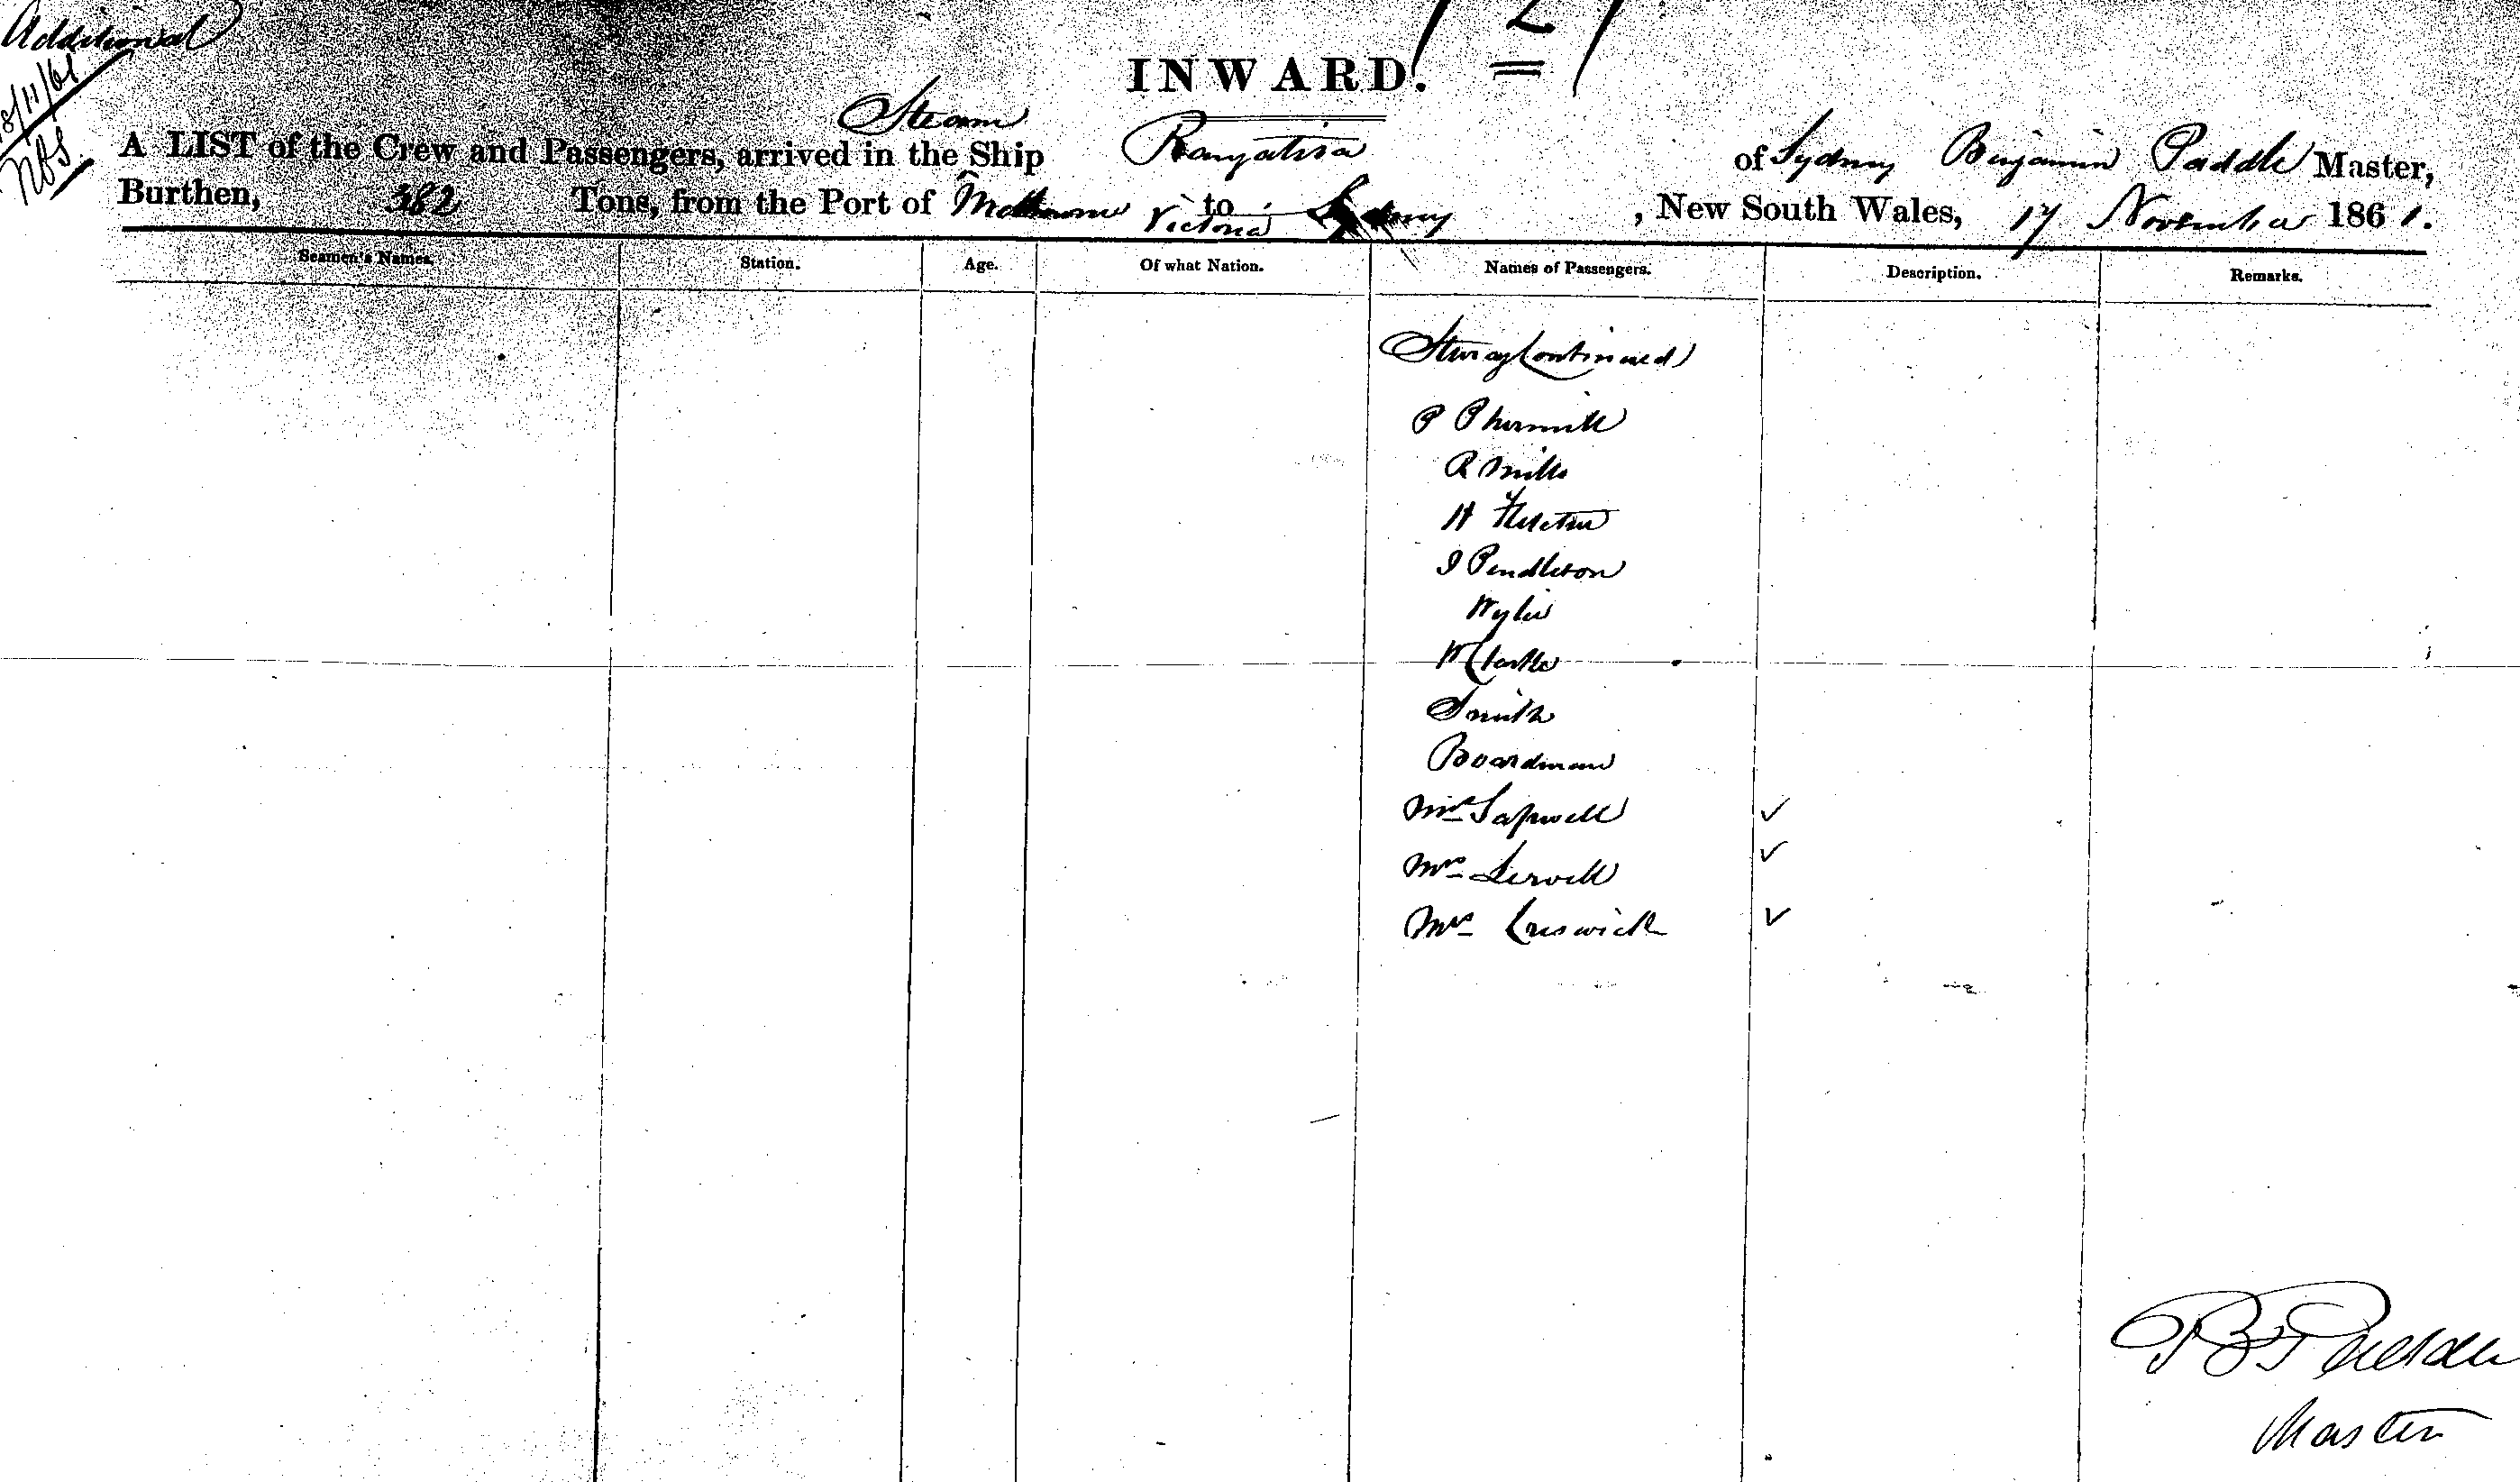 Additional
2
18/11/61
INWARD.
Steam
A LIST of the Crew and Passengers, arrived in the Ship Rangatira of Sydney Benjamin Paddle Master,
Burthen, 382 Tons, from the Port of Melbourne Victoria to Sydney , New South Wales, 17 November 1861.
Seamen's Names. Station. Age. Of what Nation. Names of Passengers. Description. Remarks.
Continued
P
R Mills
H
I Pendleton
Wylie
W Clarke
Smith
Boardman
Sapwell ✓
Mrs ✓
Mrs ✓
Master